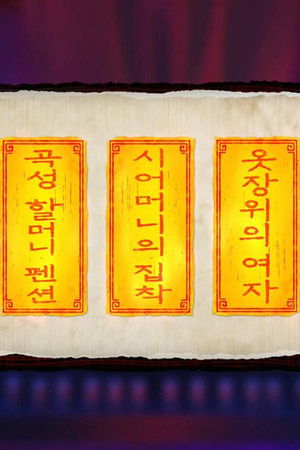 곡성 할머니 펜션
시어머니의 집착
옷장 위의 여자